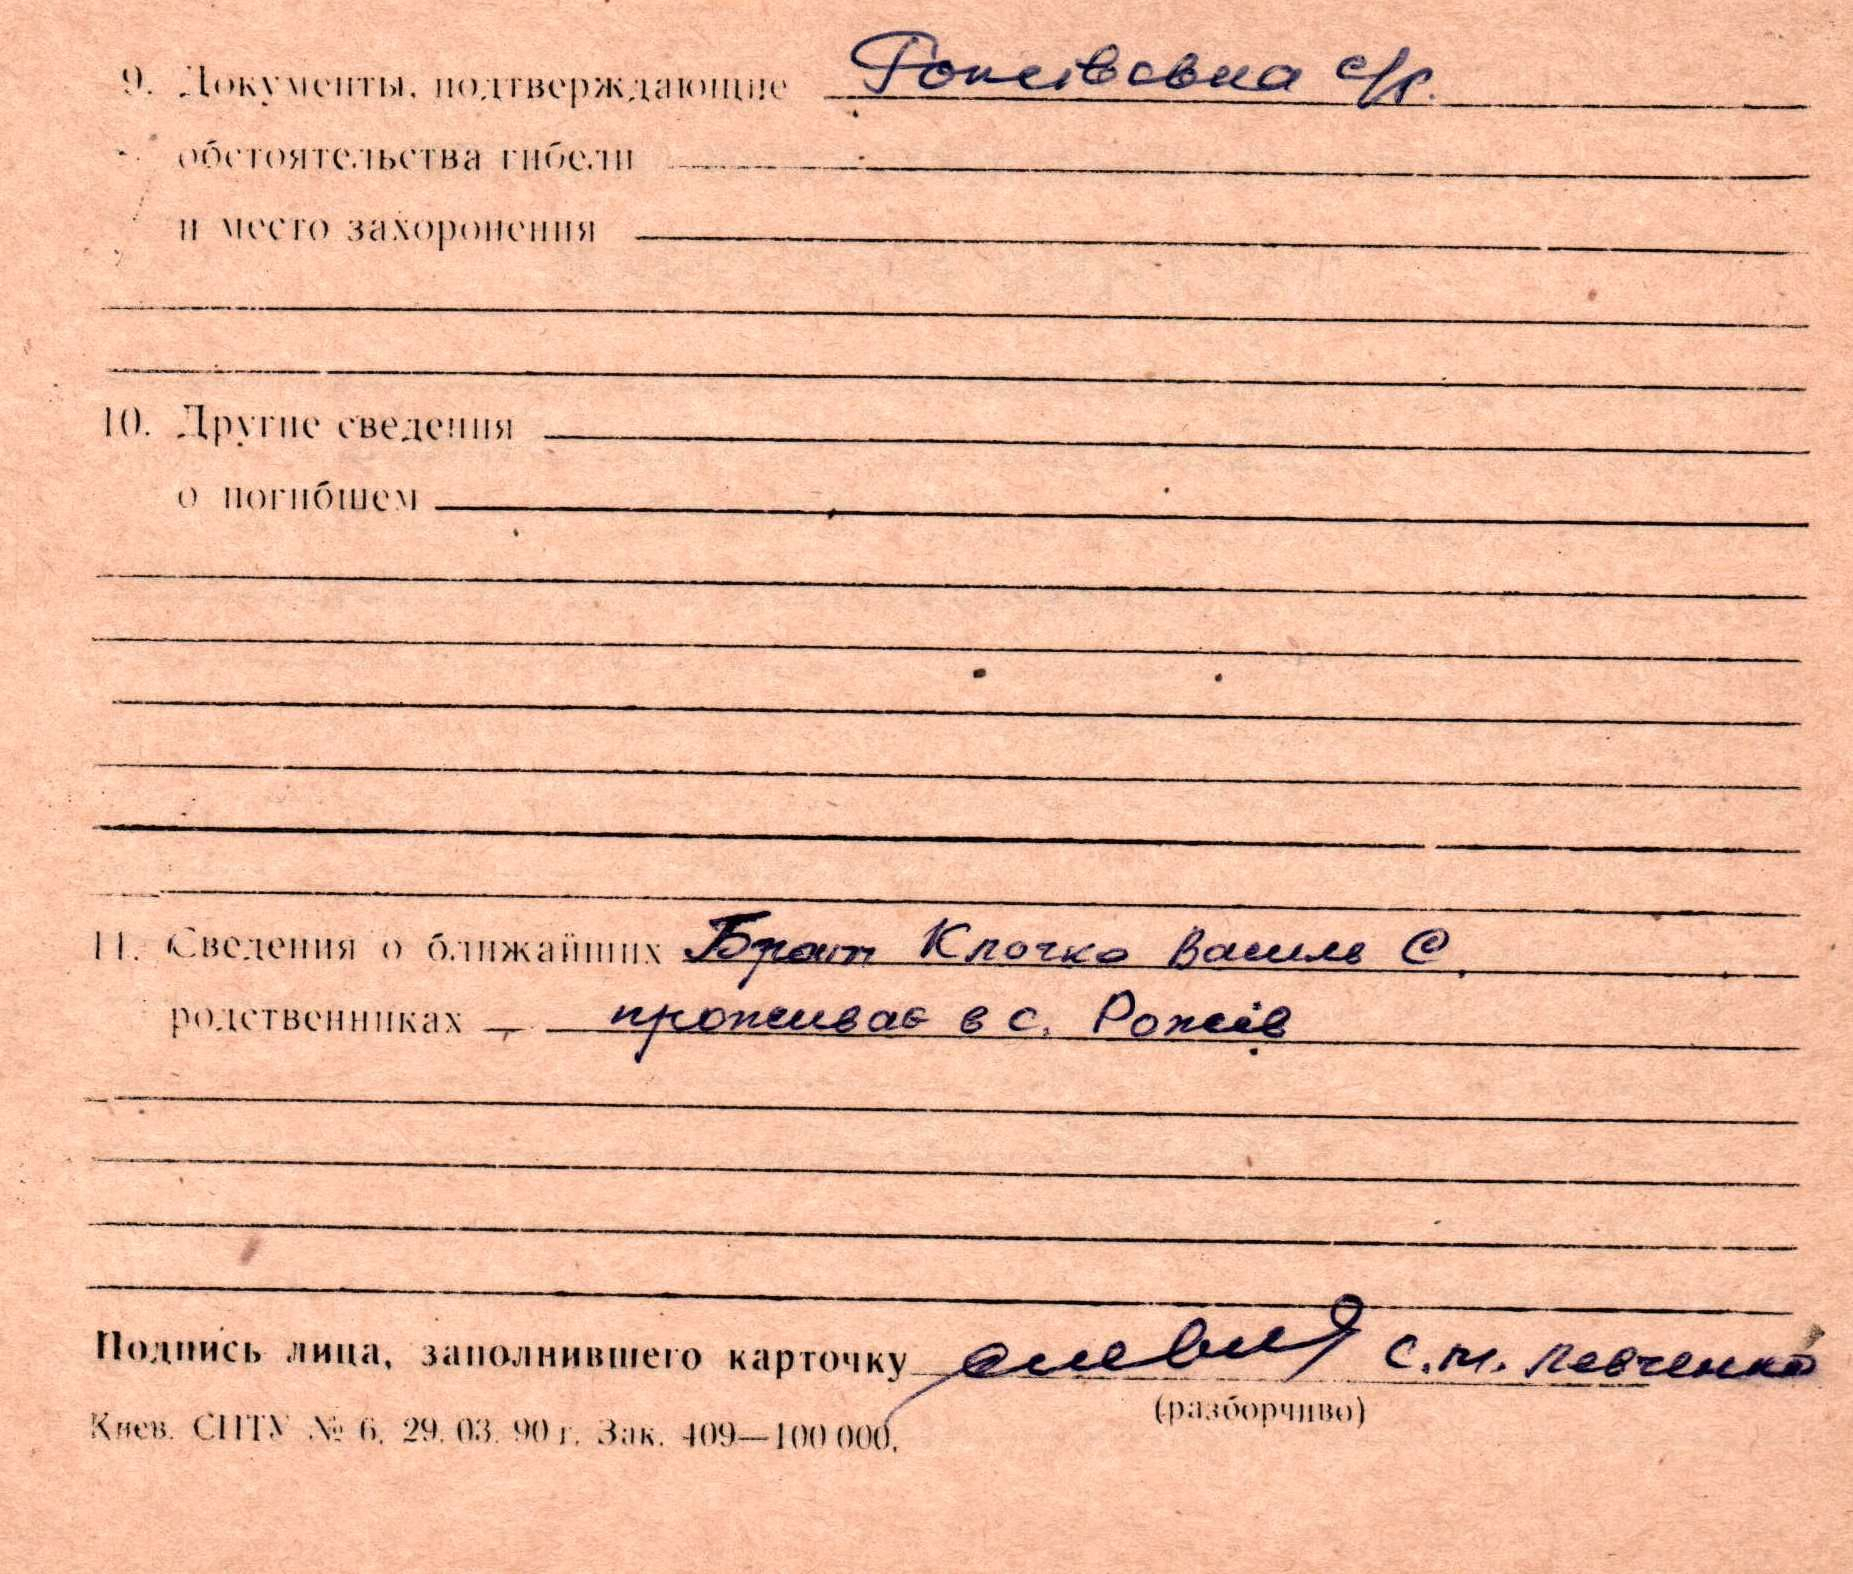 9. Документы, подтверждающие Рожівська с/р.
обстоятельства гибели
и место захоронения
10. Другие сведения
о погибшем
11. Сведения о ближайших Брат Клочко Василь С.
родственниках проживає в с. Рожів
Подпись лица, заполнившего карточку С.М. Левченко
(разборчиво)
Киев. СПТУ № 6. 29. 03. 90 г. Зак. 409—100 000.